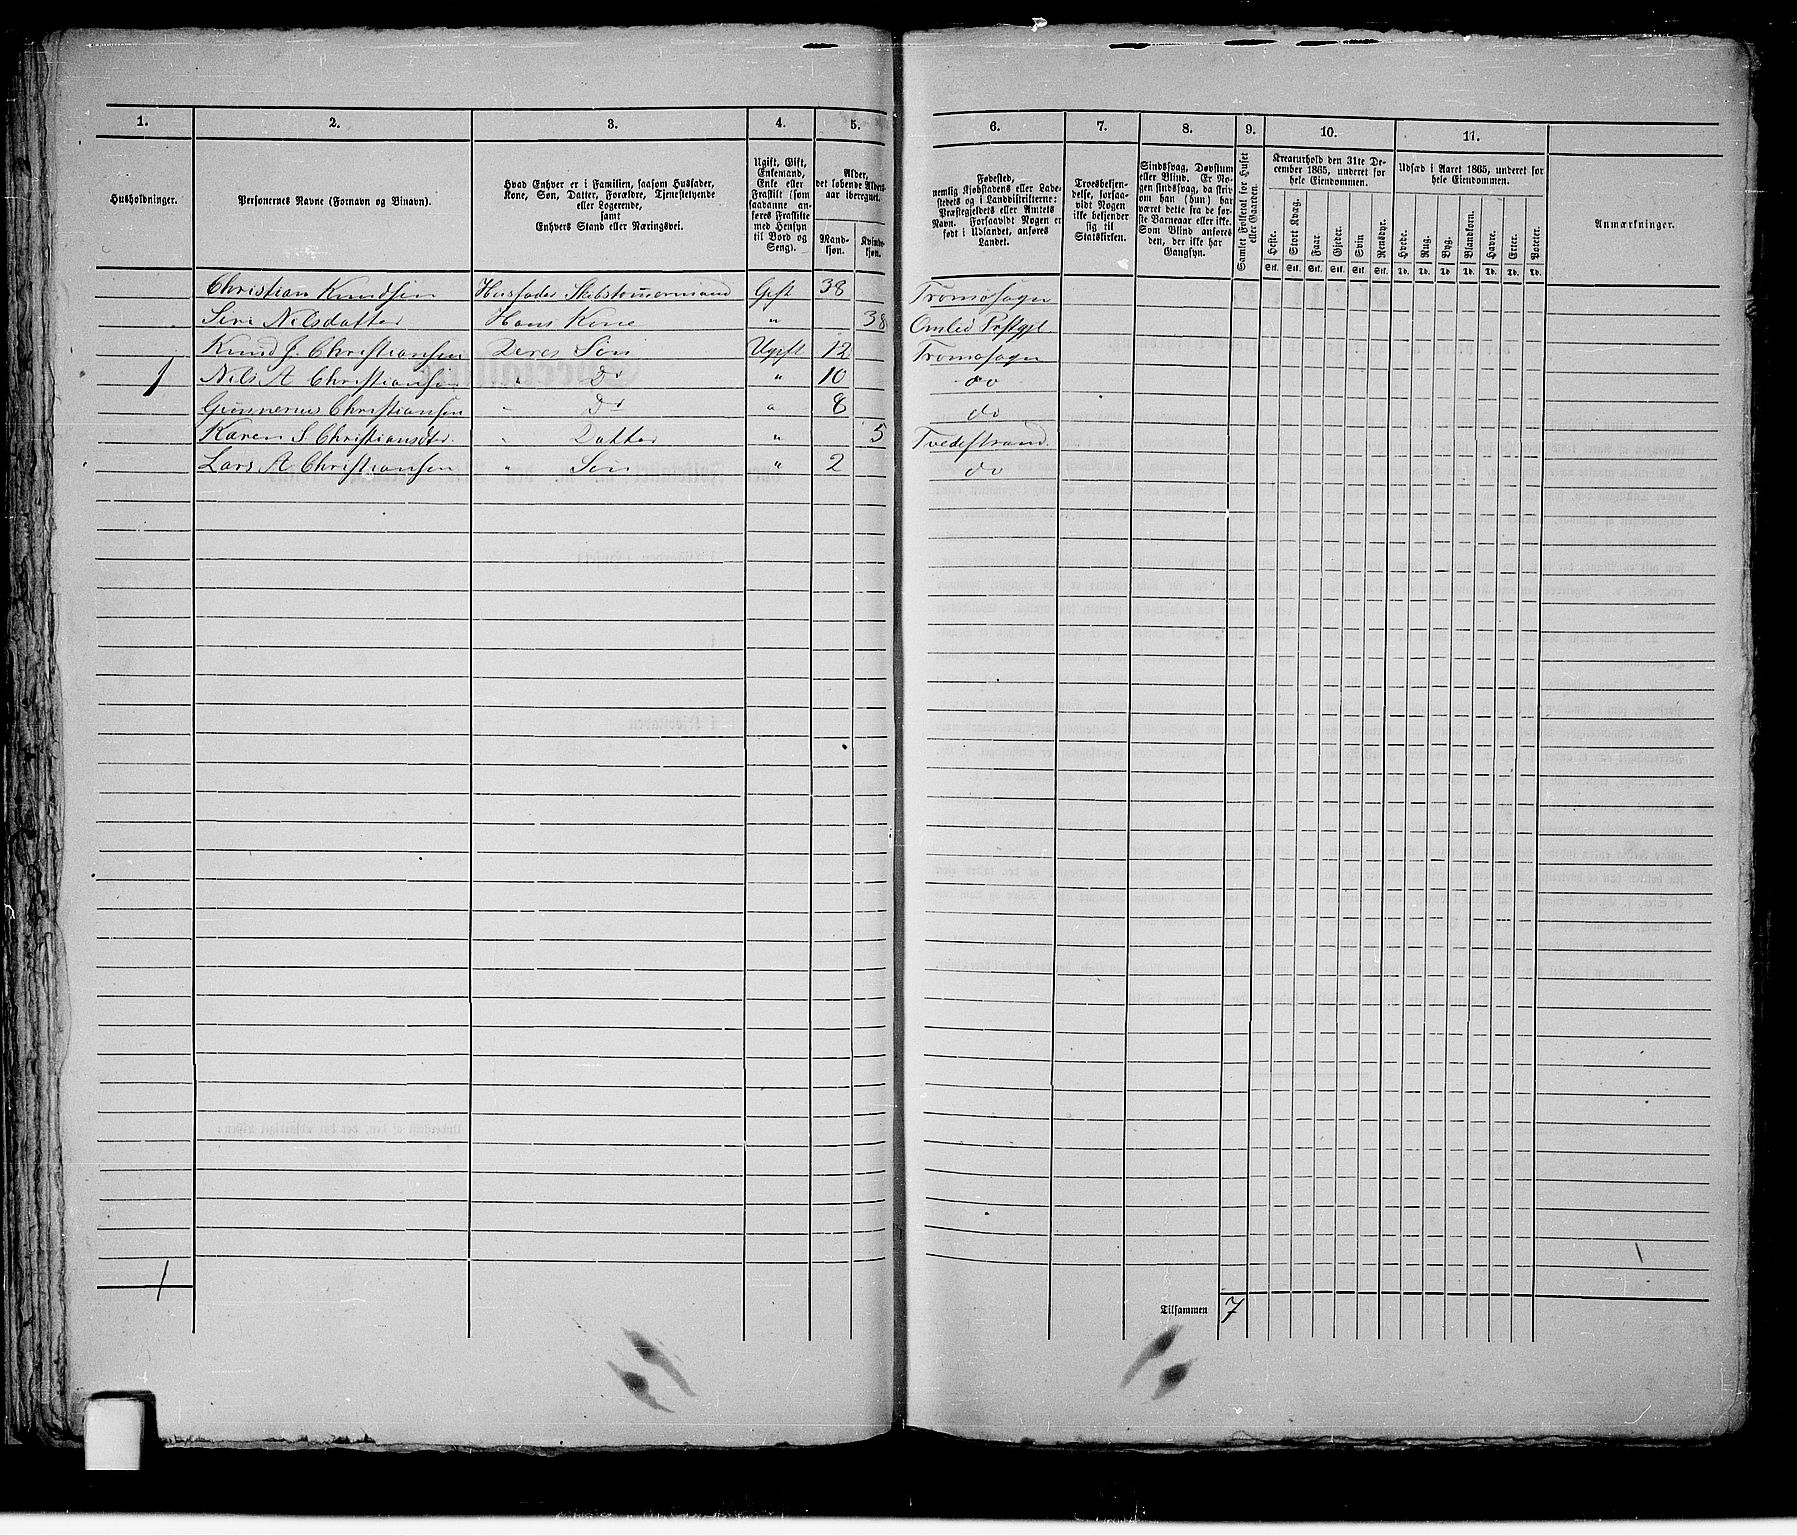 1. 2. 3. 4. 5. 6. 7. 8. 9. 10. 11.
Husholdninger.
Personernes Navne (Fornavn og Binavn).
Hvad Enhver er i Familien, saasom Husfader,
Kone, Søn, Datter, Forældre, Tjenestetyende
eller Logerende,
samt
Enhvers Stand eller Næringsvei.
Ugift, Gift,
Enkemand,
Enke eller
Fraskilt (som
saadanne an-
føres Fraskilte
med Hensyn
til Bord og
Seng).
Alder,
det løbende Alders-
aar iberegnet.
Mand-
kjøn.
Kvinde-
kjøn.
Fødested,
nemlig Kjøbstadens eller Lade-
stedets og i Landdistrikterne:
Præstegjeldets eller Amtets
Navn. Forsaavidt Nogen er
født i Udlandet, anføres
Landet.
Troesbekjen-
delse, forsaa-
vidt Nogen
ikke bekjender
sig til
Statskirken.
Sindssvag, Døvstum
eller Blind. Er No-
gen sindssvag, da skriv
om han (hun) har
været dette fra de før-
ste Barneaar eller ikke.
Som Blind anføres
den, der ikke har
Gangsyn.
Samlet Folketal for Huset
eller Gaarden.
Kreaturhold den 31te De-
cember 1865, underet for
hele Eiendommen.
Heste. Stort Kvæg. Faar. Gjeder. Svin Rensdyr.
Stk. Stk. Stk. Stk. Stk. Stk.
Udsæd i Aaret 1865, underet for
hele Eiendommen.
Hvede. Rug. Byg. Blandkorn. Havre. Erter. Poteter.
Td. Td. Td. Td. Td. Td. Td.
Anmærkninger.
Christian Knudsen Husfader Skibstømermand Gift 38 Tromøsogn
Siri Nilsdatter Hans Kone " 38 Omlid Prstgjl.
Knud J. Christiansen Deres Søn Ugift 12 Tromøsogn
1 Nils A Christiansen " Do " 10 do
Gunnerus Christiansen " Do " 8 do
Karen S Christiansdtr " Datter " 5 Tvedestrand
Lars A Christiansen " Søn " 2 do
1
Tilsammen 7